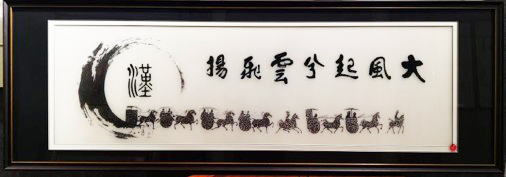 大風起兮雲飛揚
漢